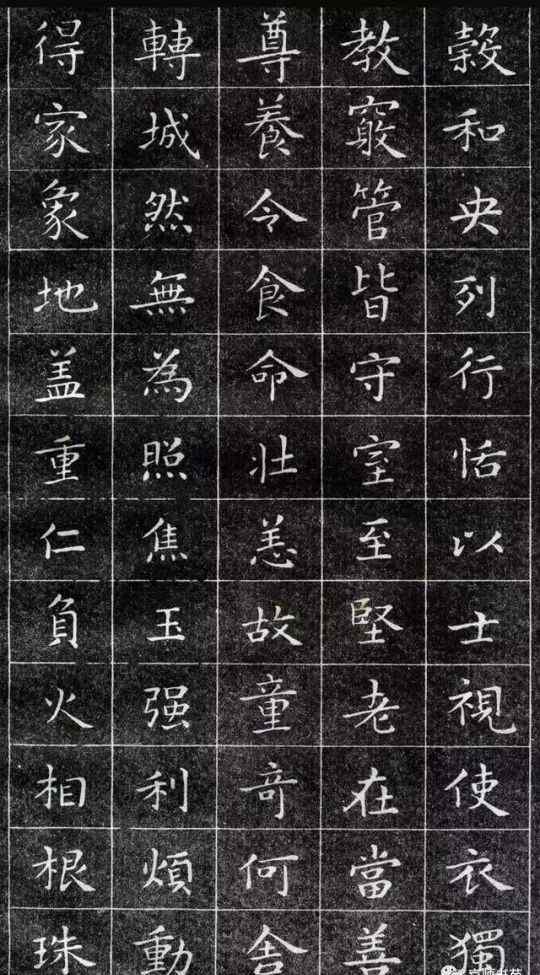 穀和央列行恬以士視使衣獨
教竅管皆守室至堅老在當善
尊養令食命壯恙故童奇何舍
轉城然無為照焦玉强利煩動
得家象地盖重仁負火相根珠